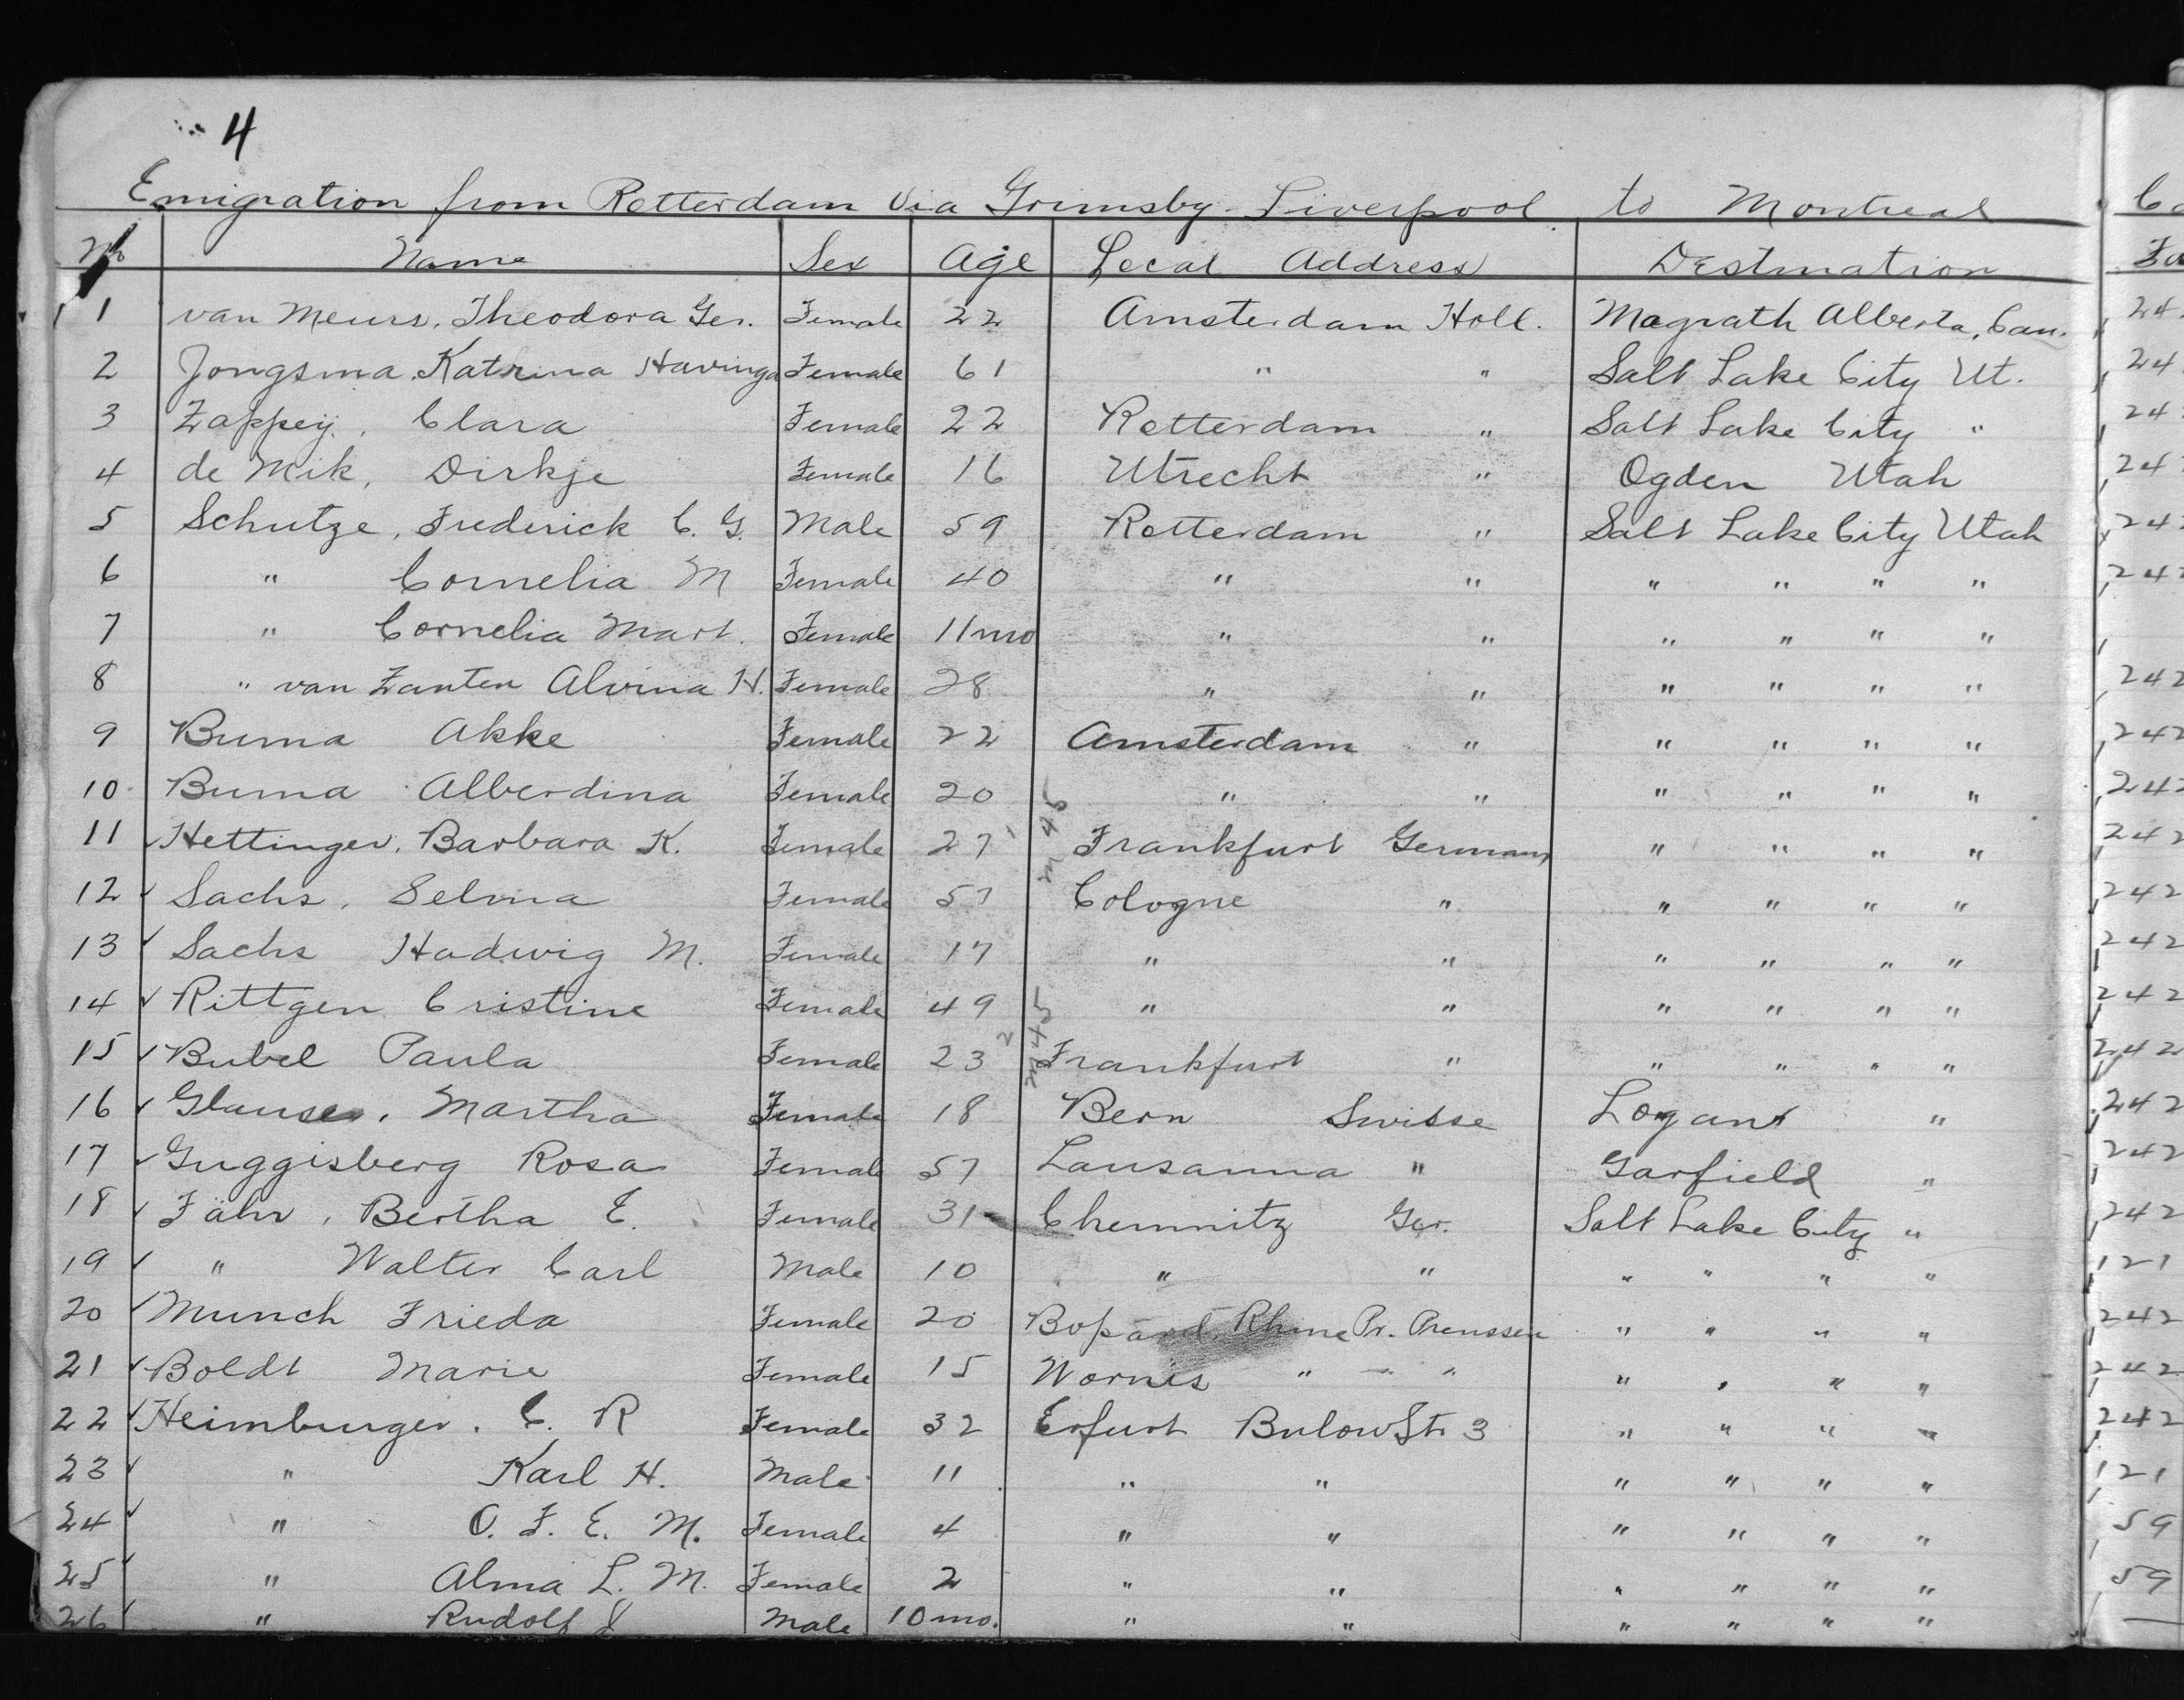 4
Emigration from Rotterdam Via Grimsby-Liverpool to Montreal
No Name Sex Age Local Address Destination
1 van Meurs, Theodora Ger. Female 22 Amsterdam Holl. Magrath Alberta, Can. 24
2 Jongsma, Katrina Havinga Female 61 " " Salt Lake City Ut. 24
3 Zappey, Clara Female 22 Rotterdam " Salt Lake City " 24
4 de Mik, Dirkje Female 16 Utrecht " Ogden Utah 24
5 Schutze, Frederick C. G. Male 59 Rotterdam " Salt Lake City Utah 242
6 " Cornelia M Female 40 " " " " " " 242
7 " Cornelia Mart. Female 11 mo " " " " " "
8 " van Zanten Alvina H. Female 28 " " " " " " 242
9 Buma Akke Female 22 Amsterdam " " " " " 242
10 Buma Alberdina Female 20 " " " " " " 242
11 ✓ Hettinger, Barbara K. Female 27 Frankfurt Germany " " " " 242
12 ✓ Sachs, Selma Female 57 Cologne " " " " " 242
13 ✓ Sachs Hadwig M. Female 17 " " " " " " 242
14 ✓ Rittgen Cristine Female 49 " " " " " " 242
15 ✓ Bubel Paula Female 23 Frankfurt " " " " " 242
16 ✓ Glauser, Martha Female 18 Bern Swisse Logan " 242
17 ✓ Guggisberg Rosa Female 57 Lausanna " Garfield " 242
18 ✓ Fähr, Bertha E. Female 31 Chemnitz Ger. Salt Lake City " 242
19 ✓ " Walter Carl Male 10 " " " " " " 121
20 ✓ Munch Frieda Female 20 Bopard, Rhine Pr. Preussen " " " " 242
21 ✓ Boldt Marie Female 15 Worms " " " " " " " 242
22 ✓ Heimburger. C. R Female 32 Erfurt Bulow Str 3 " " " " 242
23 ✓ " Karl H. Male 11 " " " " " " 121
24 ✓ " O. F. E. M. Female 4 " " " " " " 59
25 ✓ " Alma L. M. Female 2 " " " " " " 59
26 ✓ " Rudolf Male 10 mo. " " " " " "